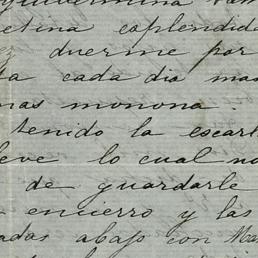 Guillermina
etina esplendida
duerme por
cada dia mas
mas monona.
tenido la escarl
leve lo cual no
de guardarle
encierro y las
adas abajo con Ma